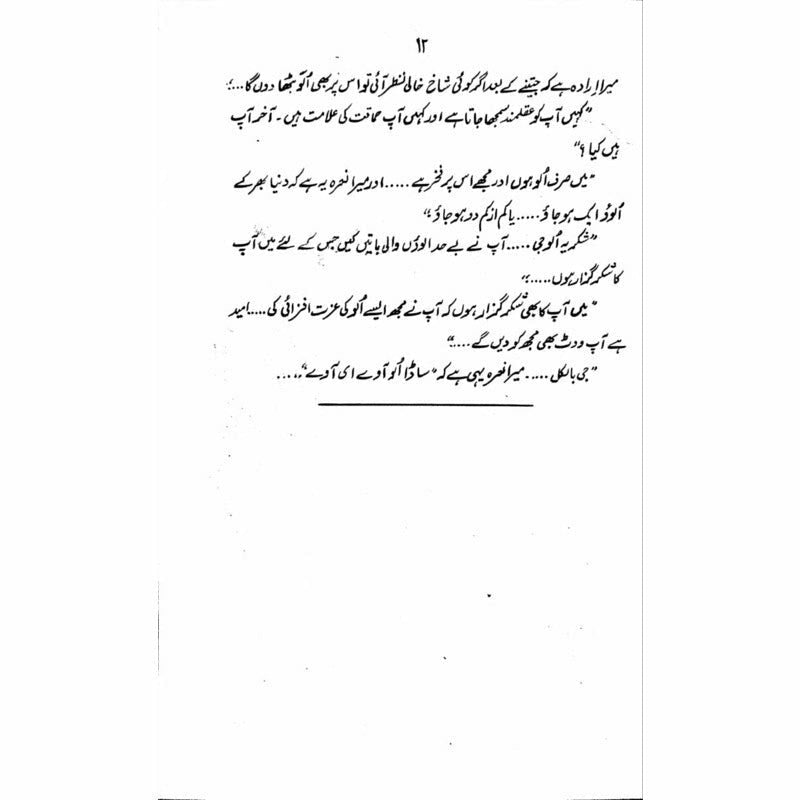 ۱۲
میرا ارادہ ہے کہ جیتنے کے بعد اگر کوئی شاخ خالی نظر آئی تو اس پر بھی اُلّو بٹھا دوں گا....."
"کہیں آپ کو عقلمند سمجھا جاتا ہے اور کہیں آپ حماقت کی علامت ہیں۔ آخر آپ
ہیں کیا؟"
"میں صرف اُلو ہوں اور مجھے اس پر فخر ہے ..... اور میرا نعرہ یہ ہے کہ دنیا بھر کے
اُلوؤ ایک ہو جاؤ ..... یا کم از کم دو ہو جاؤ۔"
"شکریہ اُلو جی ..... آپ نے بے حد الوؤں والی باتیں کیں جس کے لئے میں آپ
کا شکر گزار ہوں ....."
"میں آپ کا بھی شکر گزار ہوں کہ آپ نے مجھ ایسے اُلو کی عزت افزائی کی ..... امید
ہے آپ ووٹ بھی مجھ کو دیں گے ....."
"جی بالکل ..... میرا نعرہ یہی ہے کہ "ساڈا اُلو آوے ای آوے" .....